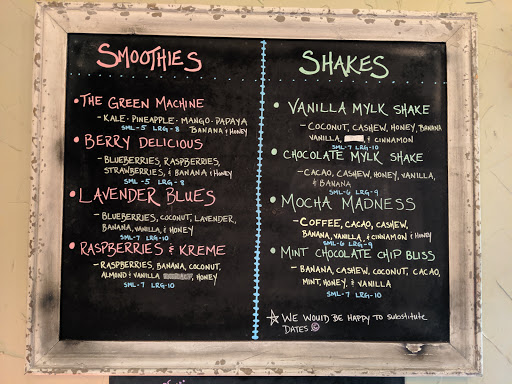 SMOOTHIES
• THE GREEN MACHINE
- KALE · PINEAPPLE · MANGO · PAPAYA
BANANA & HONEY
SML - 5 LRG - 8
• BERRY DELICIOUS
- BLUEBERRIES, RASPBERRIES,
STRAWBERRIES, & BANANA & HONEY
SML - 5 LRG - 8
• LAVENDER BLUES
- BLUEBERRIES, COCONUT, LAVENDER,
BANANA, VANILLA, & HONEY
SML - 7 LRG - 10
• RASPBERRIES & KREME
- RASPBERRIES, BANANA, COCONUT,
ALMOND & VANILLA HONEY
SML - 7 LRG - 10
SHAKES
• VANILLA MYLK SHAKE
- COCONUT, CASHEW, HONEY, BANANA
VANILLA, & CINNAMON
SML - 7 LRG - 10
• CHOCOLATE MYLK SHAKE
- CACAO, CASHEW, HONEY, VANILLA,
& BANANA
SML - 6 LRG - 9
• MOCHA MADNESS
- COFFEE, CACAO, CASHEW,
BANANA, VANILLA, & CINNAMON & HONEY
SML - 6 LRG - 9
• MINT CHOCOLATE CHIP BLISS
- BANANA, CASHEW, COCONUT, CACAO,
MINT, HONEY, & VANILLA
SML - 7 LRG - 10
☆ WE WOULD BE HAPPY TO SUBSTITUTE
DATES ☺